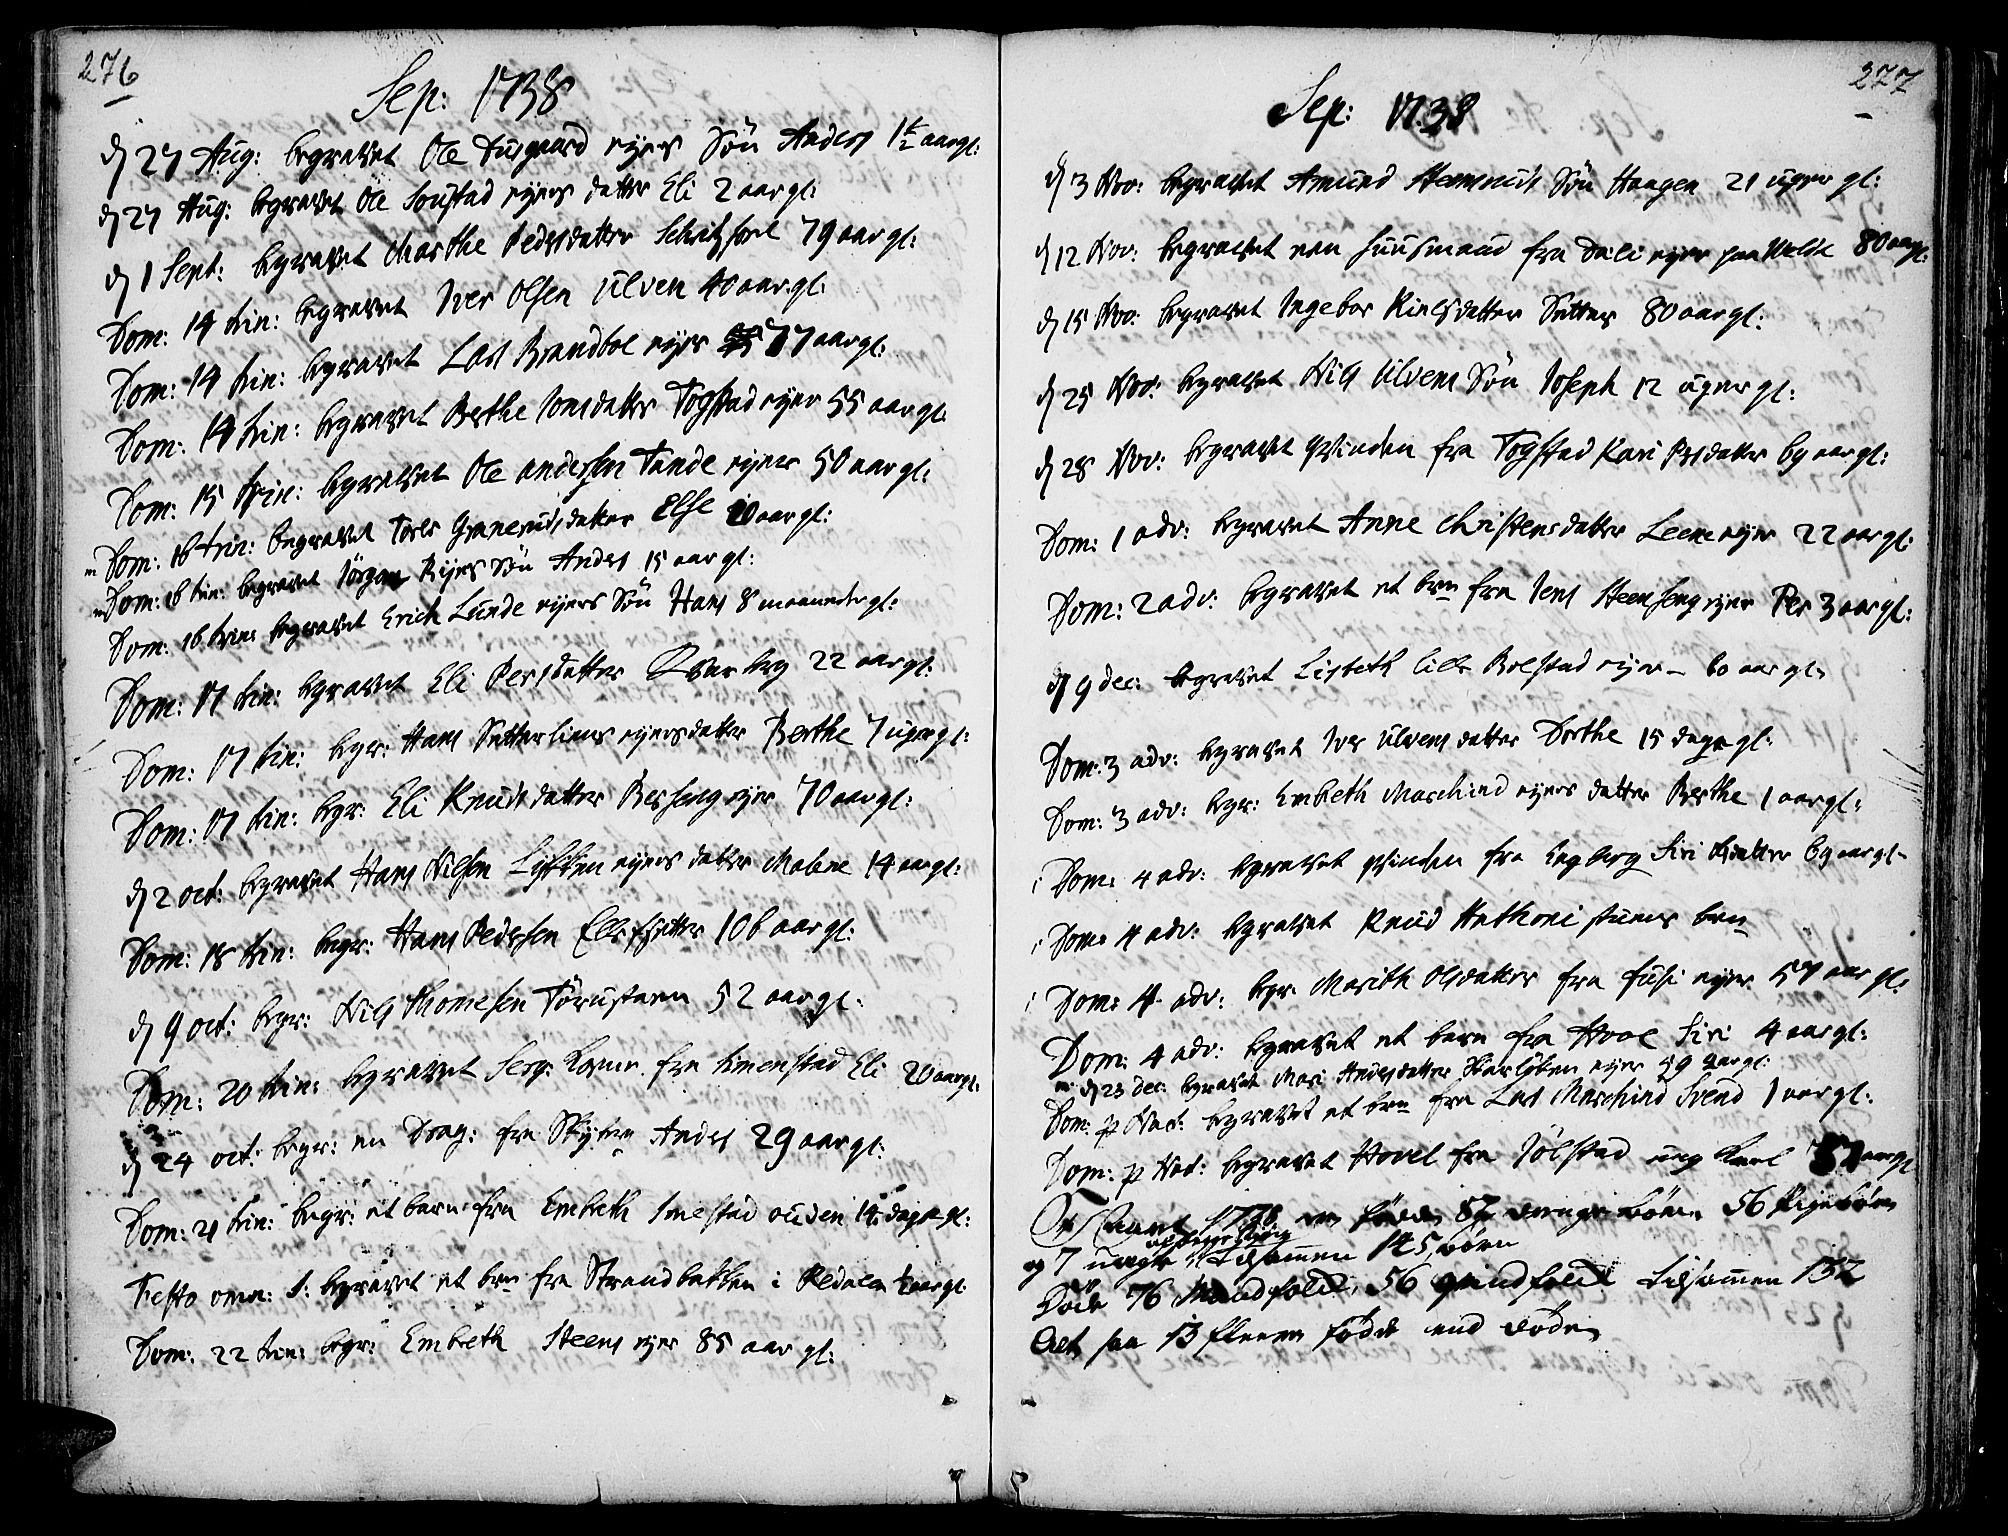 276
Sep: 1738
d 27 Aug: begravet Ole Fusgaard ejers Sön Anders 1½ aar gl:
d 27 Aug: begravet Ole Soustad ejers datter Eli 2 aar gl:
d 1 Sept: begravet Marthe Pedersdatter 79 aar gl:
Dom: 14 trin: begravet Iver Olsen Ulven 40 aar gl:
Dom: 14 trin: begravet Lars Brandbol ejer 77 aar gl:
Dom: 14 trin: begravet Berthe Jonsdatter Togstad ejer 55 aar gl:
Dom: 15 trin: begravet Ole andersen Tande ejer 50 aar gl:
Dom: 16 trin: begravet Tores Granerudsdatter Else 20 aar gl:
Dom: 16 trin: begravet Jörgen Bijes Sön Anders 15 aar gl:
Dom: 16 trin: begravet Erich Lunde ejers Sön Hans 8 maaneder gl:
Dom: 17 trin: begravet Eli Persdatter Qvarberg 22 aar gl:
Dom: 17 trin: begr: Hans Sætterliens ejers datter Berthe 7 uger gl:
Dom: 17 trin: begr: Eli Knudsdatter Berseng ejer 70 aar gl:
d 2 oct: begravet Hans Nilsen Lykken ejers datter Malene 14 aar gl:
Dom: 18 trin: begr: Hans Pedersen Ellefsætter 106 aar gl:
d 9 oct: begr: Nils Thomesen Törustuen 52 aar gl:
Dom: 20 trin: begravet Serg: kone fra Simenstad Eli 20 aar gl:
d 24 oct: begr: en Drag: fra Skyberg Anders 29 aar gl:
Dom: 21 trin: begr: et barn fra Embeth Smestad ouden 14 dage gl:
Festo omn: S: begravet et brn fra Strandbakken i Redalen ½ aar gl:
Dom: 22 trin: begr: Embeth Steens ejer 85 aar gl:
277
Sep: 1738
d 3 Nov: begravet Amund Steensruds Sön Haagen 21 uger gl:
d 12 Nov: begravet een huusmand fra Dæli ejer paa Wælde 80 aar gl:
d 15 Nov: begravet Ingebor Nielsdatter Sætter 80 aar gl:
d 25 Nov: begravet Nils Ulvens Sön Joseph 12 uger gl:
d 28 Nov: begravet qvinden fra Togstad Kari Persdatter 69 aar gl:
Dom: 1 adv: begravet Anne Christensdatter Leene ejer 22 aar gl:
Dom: 2 adv: begravet et brn fra Jens Steenseng ejer Per 3 aar gl:
d 9 dec: begravet Lisbeth lille Bolstad ejer 60 aar gl:
Dom: 3 adv: begravet Iver Ulvens datter Dorthe 15 dage gl:
Dom: 3 adv: begr: Embeth Maschind ejers datter Berthe 1 aar gl:
Dom: 4 adv: begravet qvinden fra Engberg Siri 69 aar gl
Dom: 4 adv: begravet Knud Hathonistuens brn
Dom: 4 adv: begr Marith Olsdatter fra fusi ejer 57 aar gl:
Dom: 4 adv: begravet et barn fra Hvoe Siri 4 aar gl:
d 23 dec: begravet Mari Andersdatter Skarlöken ejer 59 aar gl:
Dom: p Nat: begravet et brn fra Lars Maschind Svend 1 aar gl:
Dom: p Nat: begravet Hovel fra Jölstad ung Karl 37 aar gl
1738 ere fødde 82 drenge börn, 56 Pigebörn
og 7 uægte tilsammen 145 börn
Döde 76 Mandfolk, 56 qvindfolk tilsammen 132
Alt saa 13 fleere födde end döde